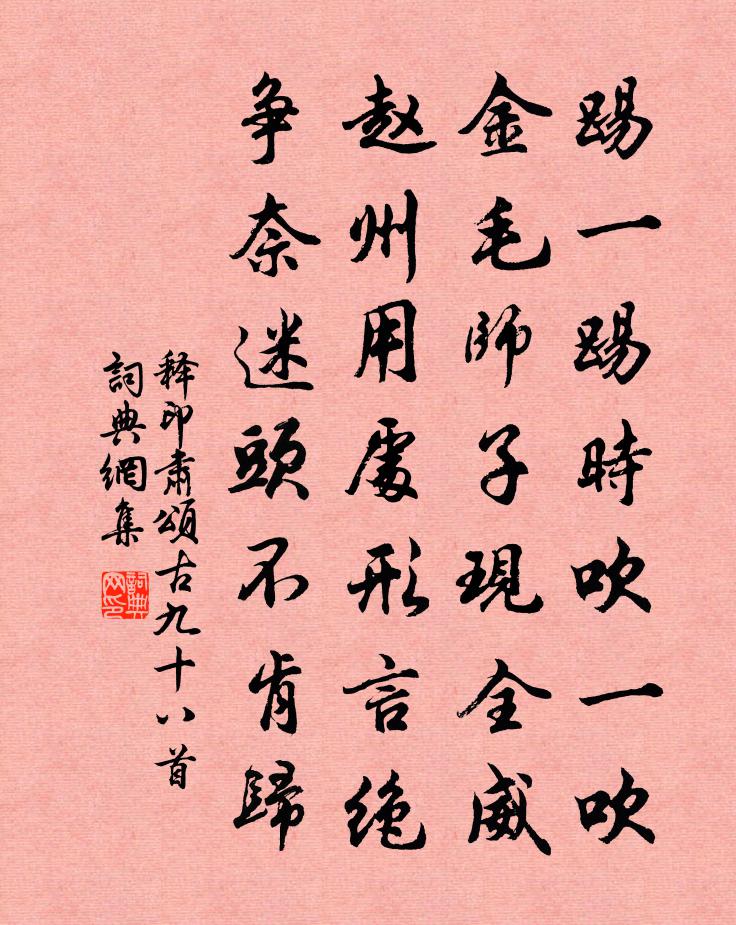 踢一踢時吹一吹
金毛師子現全威
赵州用處形言绝
争奈迷頭不肯歸
释印肃頌古九十八首
詞典網集
詞典网印